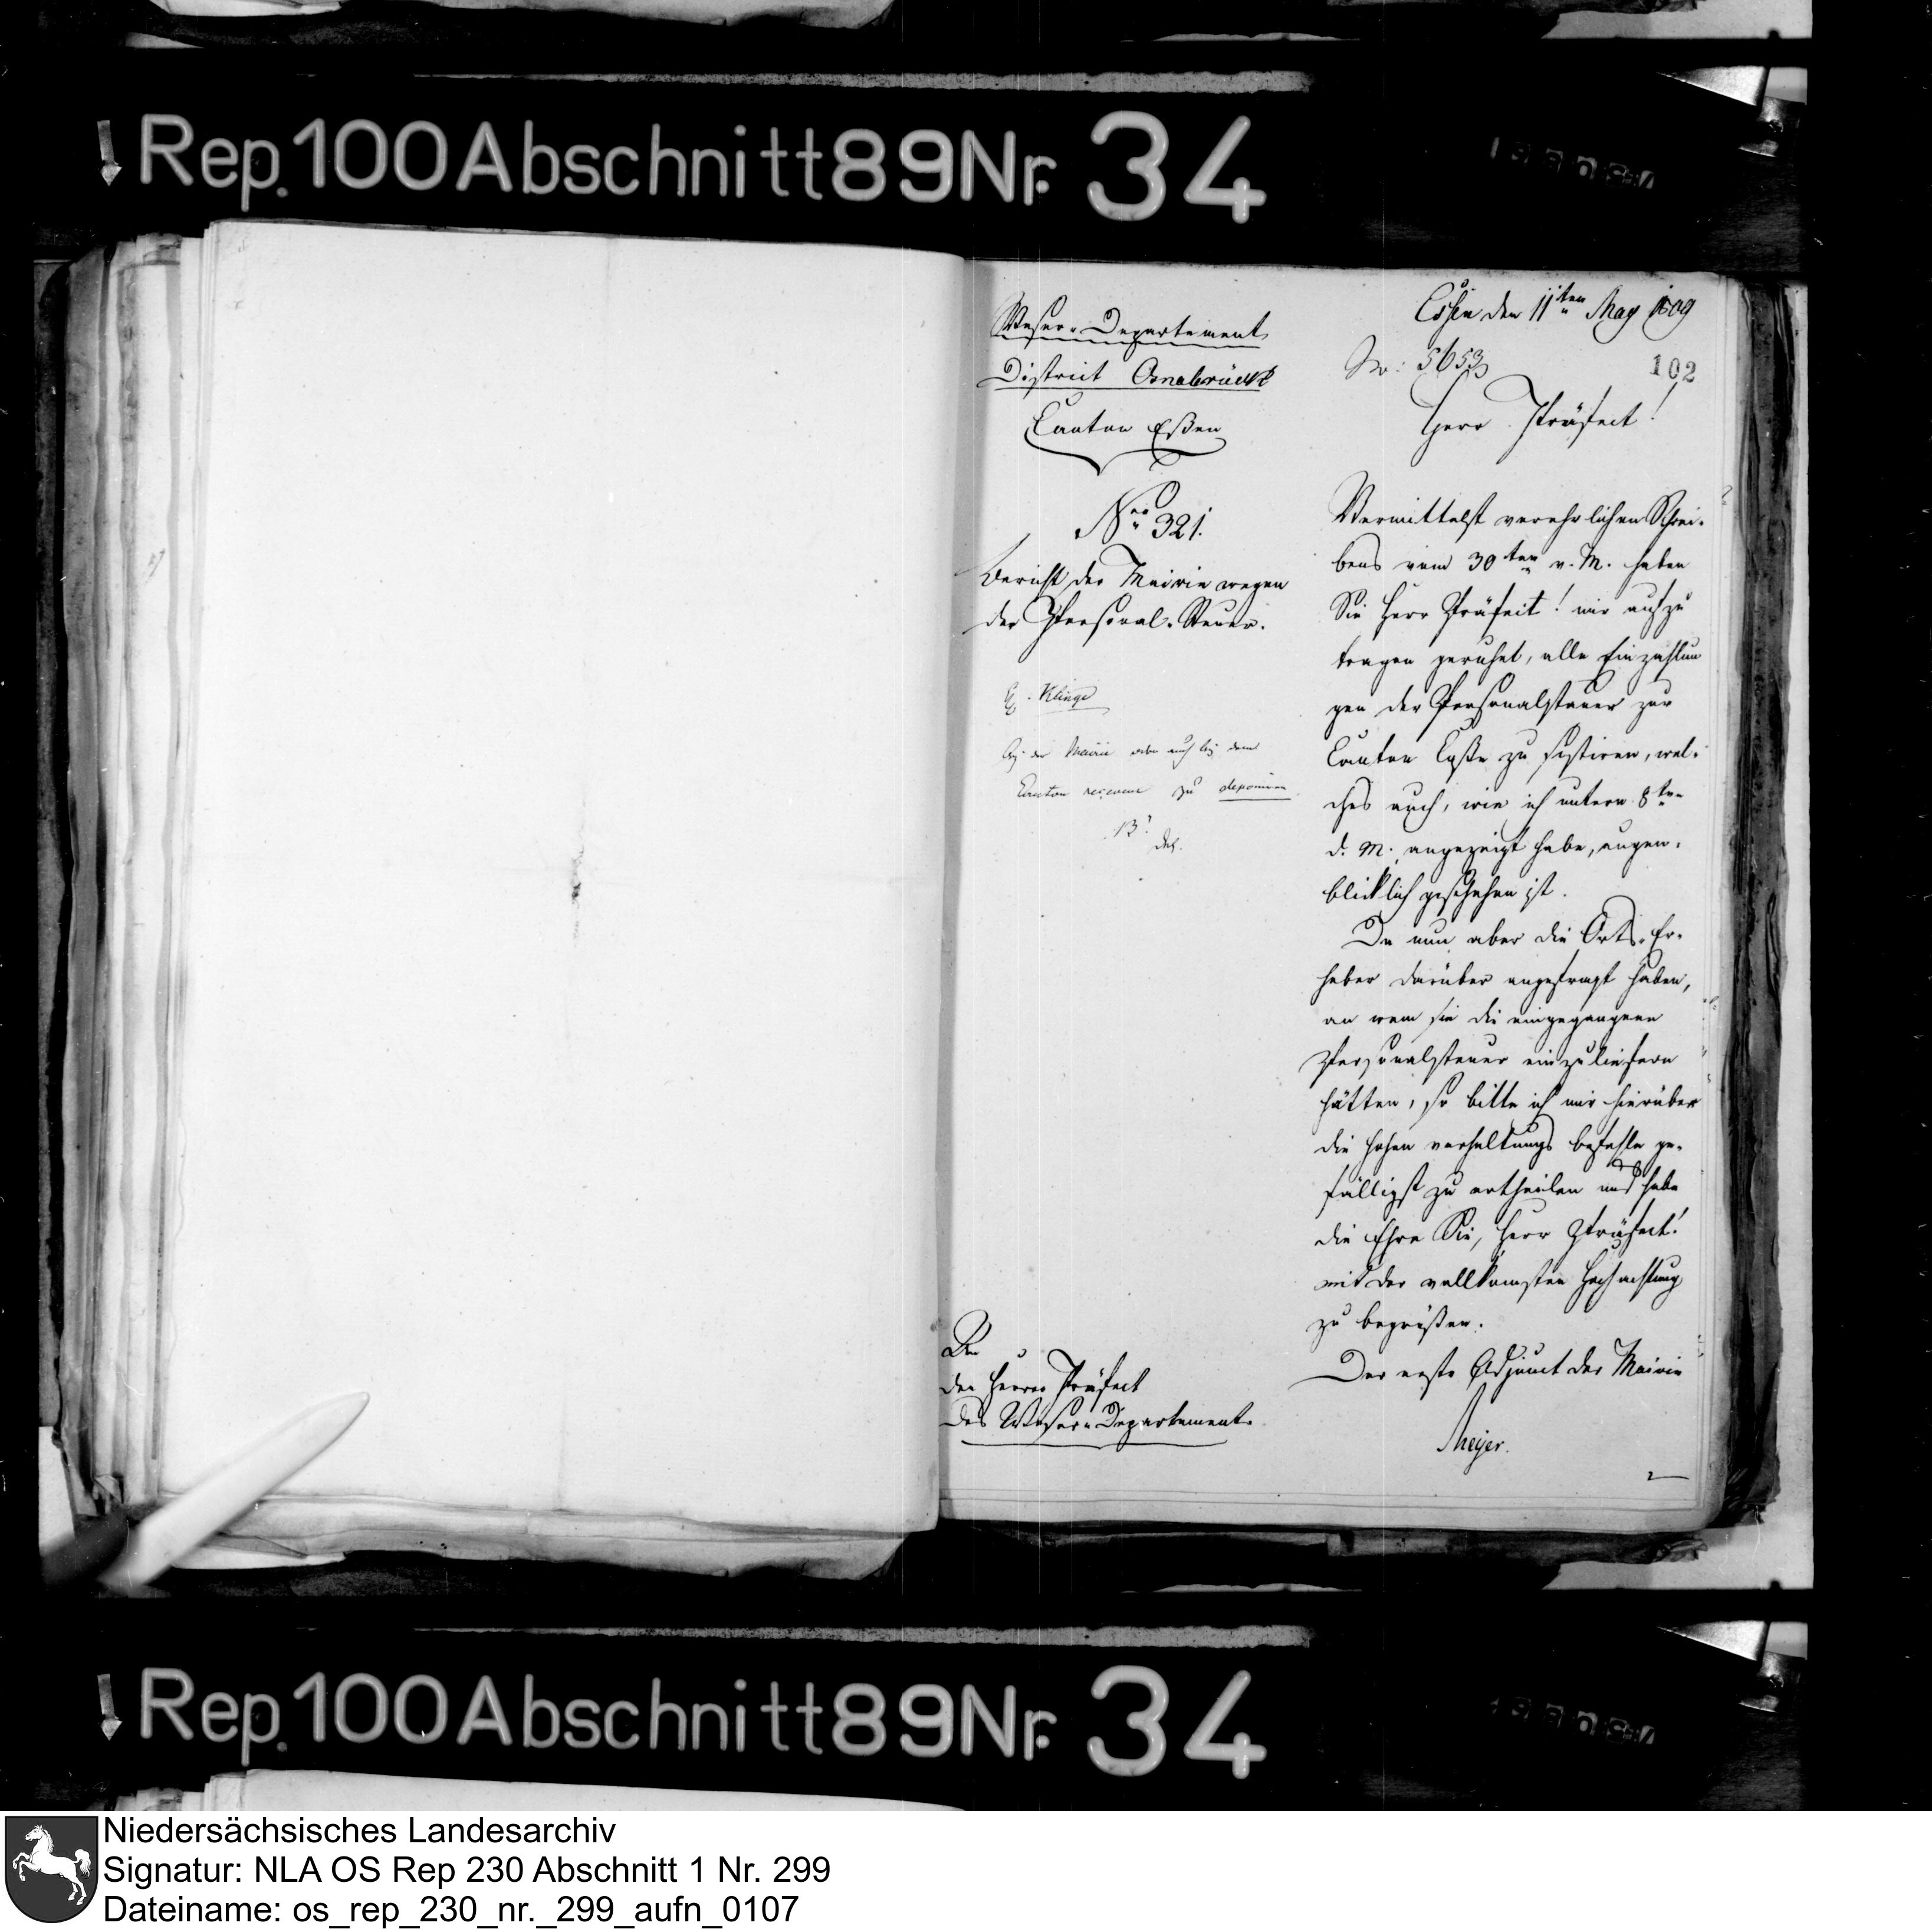 Rep. 100 Abschnitt 89 Nr. 34
Weser-Departement
District Osnabrück
Canton Eßen
Nro 321.
Bericht der Mairie wegen
der Personal-Steuer.
Klinge
bey der Mairie oder auch bey dem
Canton receveur zu deponiren
13
An
den Herrn Präfect
des Weser-Departements
Essen den 11ten May 1809
No: 5653
102
Herr Präfect!
Vermittelst verehrlichen Schrei-
bens vom 30ten v. M. haben
Sie Herr Präfect! mir aufzu
tragen geruhet, alle Einzahlun
gen der Personalsteuer zur
Canton Caße zu sistiren, wel-
ches auch, wie ich unterm 8ten
d. M. angezeigt habe, augen-
blicklich geschehen ist.
Da nun aber die Orts-Er-
heber darüber angefragt haben,
an wem sie die eingegangene
Personalsteuer einzuliefern
hätten, so bitte ich mir hierüber
die hohen verhaltungs befehle ge-
fälligst zu ertheilen und habe
die Ehre Sie, Herr Präfect!
mit der vollkomsten Hochachtung
zu begrüßen.
Der erste Adjunct der Mairie
Meyer.
Rep. 100 Abschnitt 89 Nr. 34
Niedersächsisches Landesarchiv
Signatur: NLA OS Rep 230 Abschnitt 1 Nr. 299
Dateiname: os_rep_230_nr._299_aufn_0107